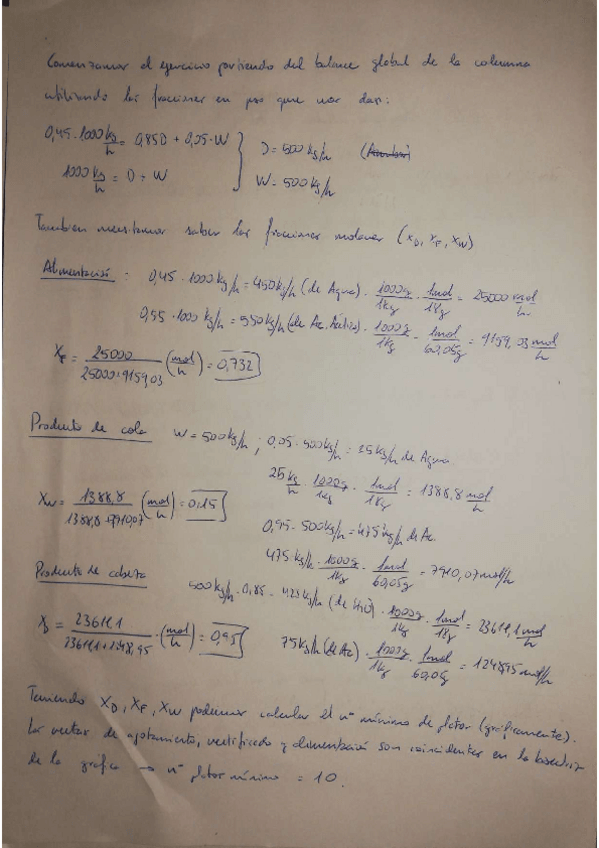 Comenzamos el ejercicio partiendo del balance global de la columna
utilizando las fracciones en peso que nos dan:
0,45 · 1000 kg/h = 0,85D + 0,05 · W
1000 kg/h = D + W
D = 500 kg/h
W = 500 kg/h
Tambien necesitamos saber las fracciones molares (xD, xF, xW)
Alimentación : 0,45 · 1000 kg/h = 450 kg/h (de Agua) · 1000g/1kg · 1mol/18g = 25000 mol/h
0,55 · 1000 kg/h = 550 kg/h (de Ac. Acético) · 1000g/1kg · 1mol/60,05g = 9159,03 mol/h
XF = 25000/25000+9159,03 (mol/h) = 0,732
Producto de cola W = 500 kg/h ; 0,05 · 500 kg/h = 25 kg/h de Agua
25 kg/h · 1000g/1kg · 1mol/18g = 1388,8 mol/h
XW = 1388,8/1388,8+7910,07 (mol/h) = 0,15
0,95 · 500 kg/h = 475 kg/h de Ac.
475 kg/h · 1000g/1kg · 1mol/60,05g = 7910,07 mol/h
Producto de cabeza
500 kg/h · 0,85 = 425 kg/h (de H2O) · 1000g/1kg · 1mol/18g = 23611,1 mol/h
XD = 23611,1/23611,1+1248,95 · (mol/h) = 0,95
75 kg/h (de Ac) · 1000g/1kg · 1mol/60,05g = 1248,95 mol/h
Teniendo XD, XF, XW podemos calcular el nº mínimo de platos (gráficamente).
Las rectas de agotamiento, rectificado y alimentación son coincidentes en la bisectriz
de la gráfica → nº platos mínimo = 10.